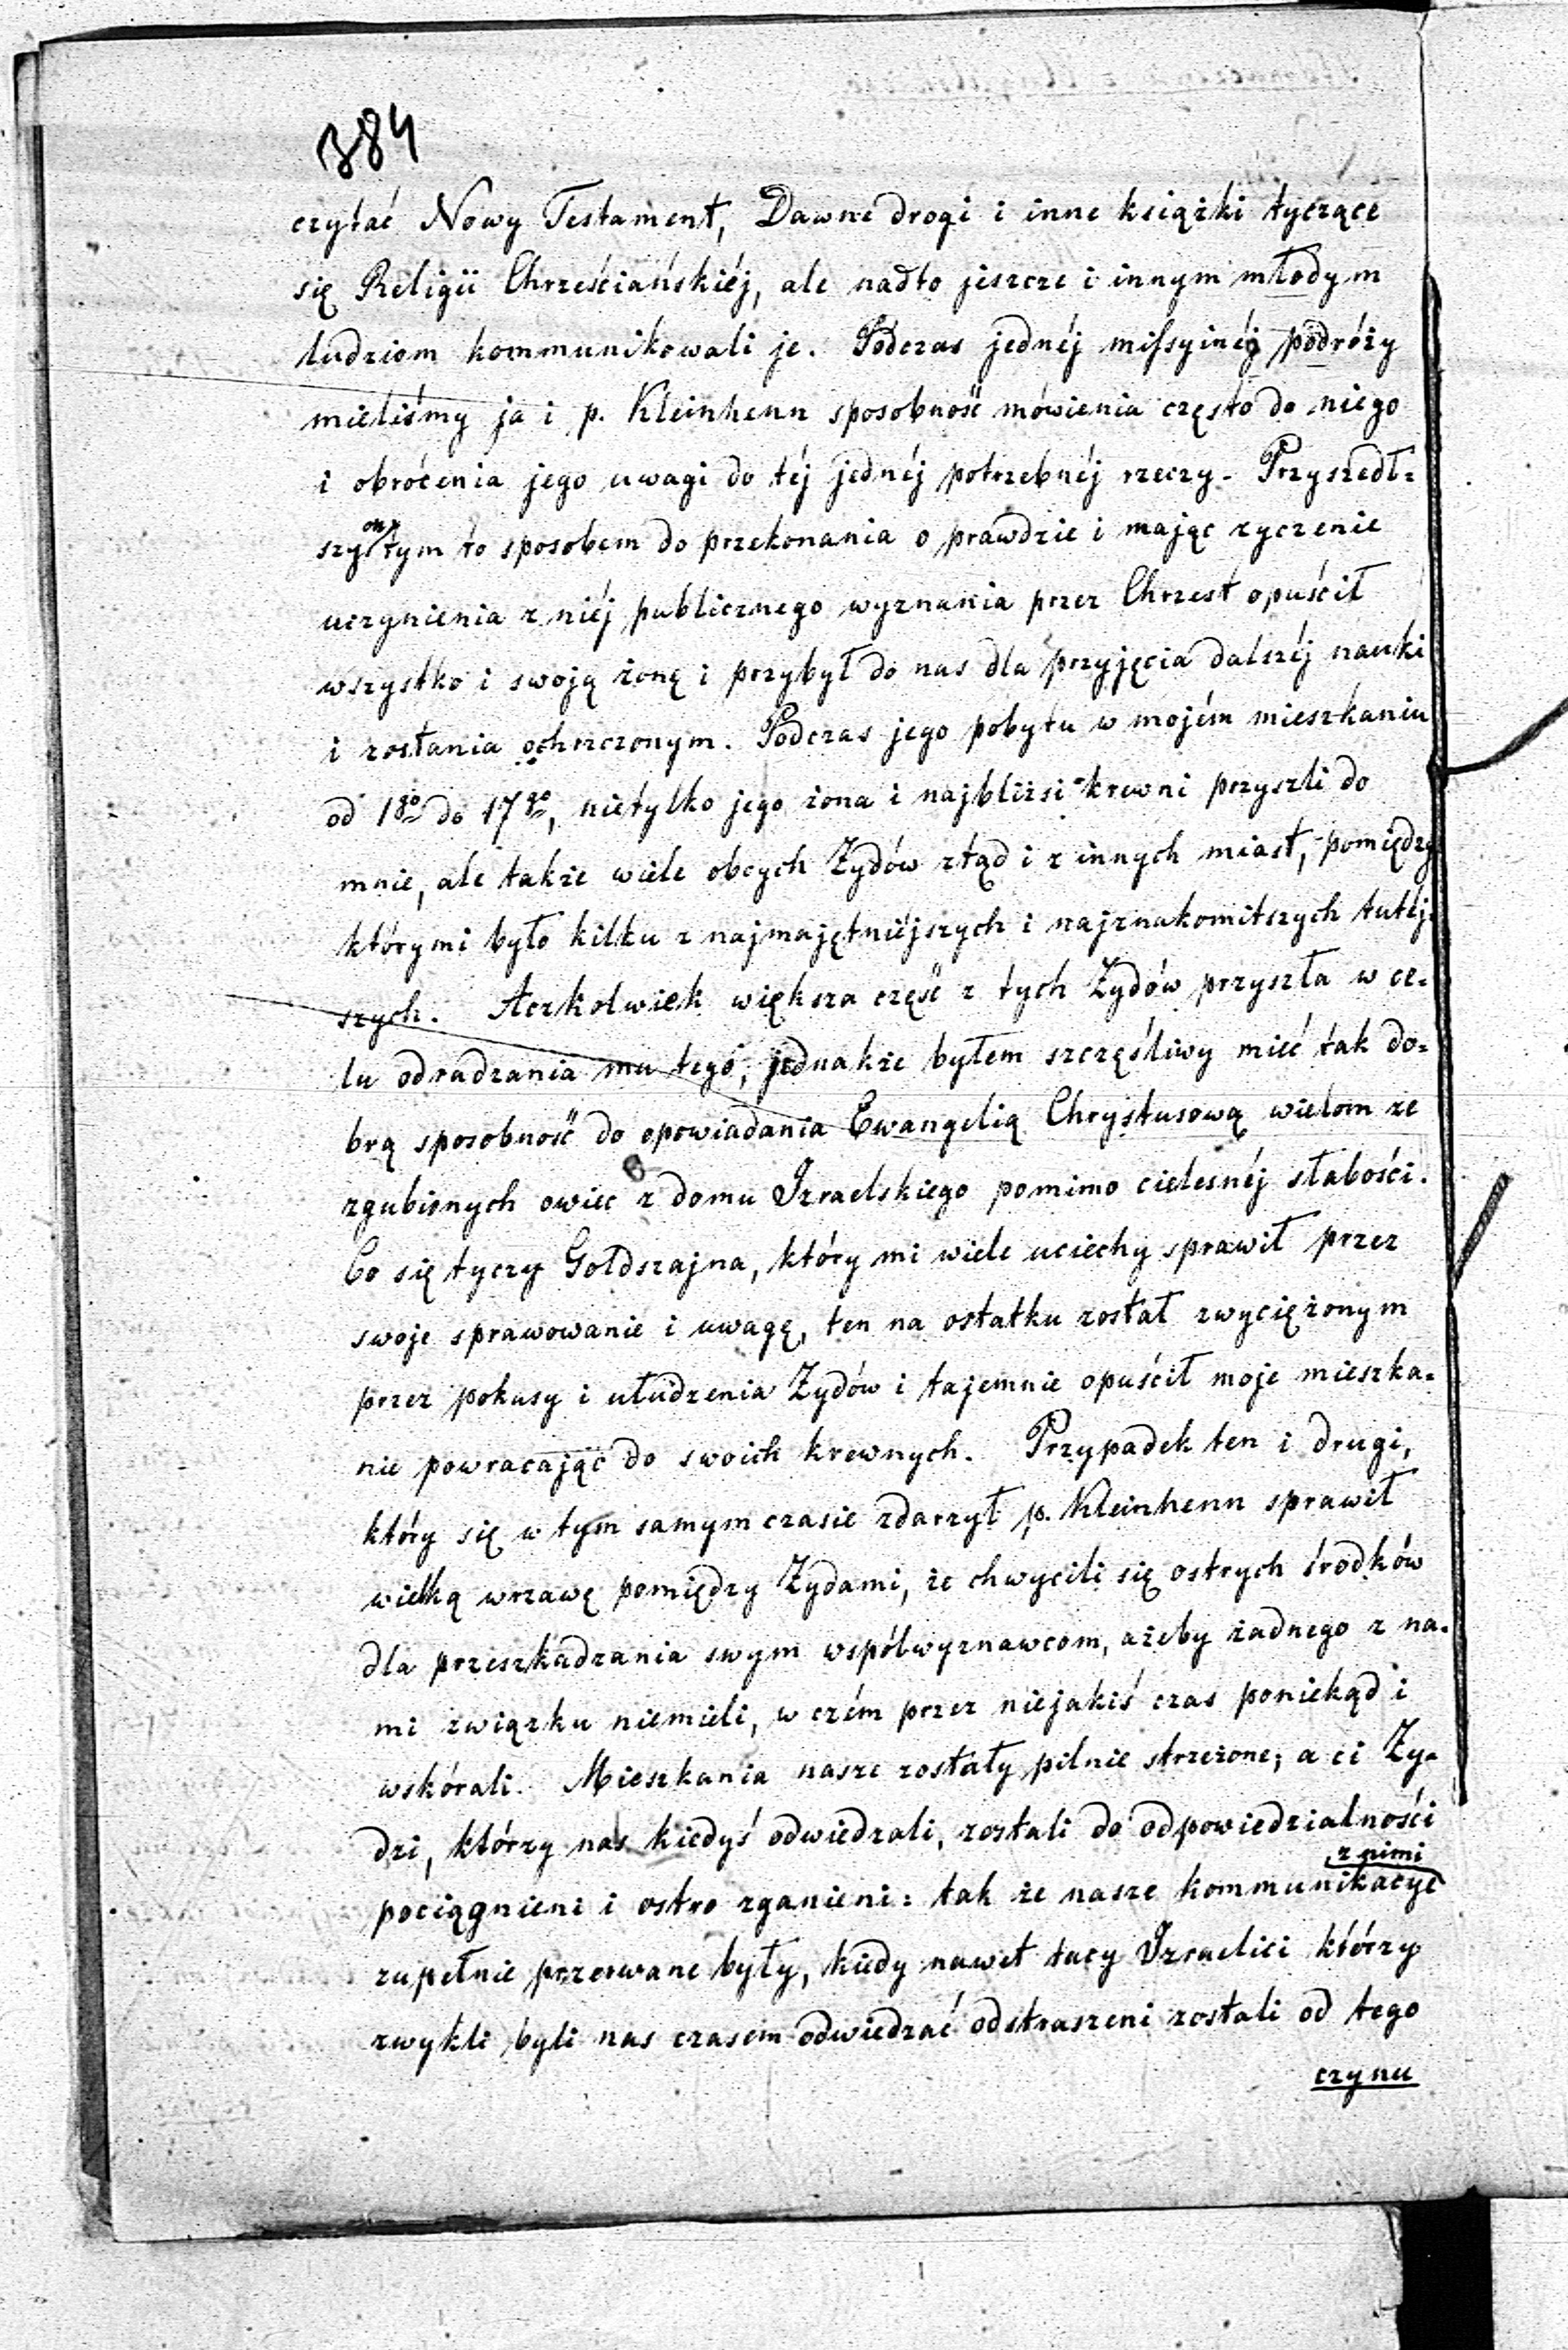 384
czytać Nowy Testament, Dawne drogi i inne książki tyczące
się Religii Chrześciańskiéj, ale nadto jeszcze i innym młodym
ludziom kommunikowali je. Podczas jednéj missyinéj podróży
mieliśmy ja i p. Kleinhenn sposobność mówienia często do niego
i obrócenia jego uwagi do téj jednéj potrzebnéj rzeczy. Przyszedł=
szy on tym to sposobem do przekonania o prawdzie i mając zyczenie
uczynienia z niéj publicznego wyznania przez Chrzest opuścił
wszystko i swoją żonę i przybył do nas dla przyjęcia dalszéj nauki
i zostania ochrzczonym. Podczas jego pobytu w mojém mieszkaniu
od 1go do 17go, nietylko jego żona i najbliżsi krewni przyszli do
mnie, ale także wiele obcych Żydów ztąd i z innych miast, pomiędzy
którymi było kilku z najmajętniéjszych i najznakomitszych tutéj=
szych. Aczkolwiek większa część z tych Żydów przyszła w ce=
lu odradzania mu tego, jednakże byłem szczęśliwy mieć tak do=
brą sposobność do opowiadania Ewangelią Chrystusową wielom ze
zgubionych owiec z domu Izraelskiego pomimo cielesnéj słabości.
Co się tyczy Goldszajna, który mi wiele uciechy sprawił przez
swoje sprawowanie i uwagę, ten na ostatku został zwyciężonym
przez pokusy i ułudzenia Żydów i tajemnie opuścił moje mieszka=
nie powracając do swoich krewnych. Przypadek ten i drugi,
który się w tym samym czasie zdarzył p. Kleinhenn sprawił
wielką wrzawę pomiędzy Żydami, że chwycili się ostrych środków
dla przeszkadzania swym wspólwyznawcom, ażeby żadnego z na=
mi związku niemieli, w czém przez niejakiś czas poniekąd i
wskórali. Mieszkania nasze zostały pilnie strzeżone; a ci Ży=
dzi, którzy nas kiedyś odwiedzali, zostali do odpowiedzialności
pociągnieni i ostro zganieni: tak że nasze kommunikacye z nimi
zupełnie przerwane były, kiedy nawet tacy Izraelici którzy
zwykli byli nas czasem odwiedzać odstraszeni zostali od tego
czynu